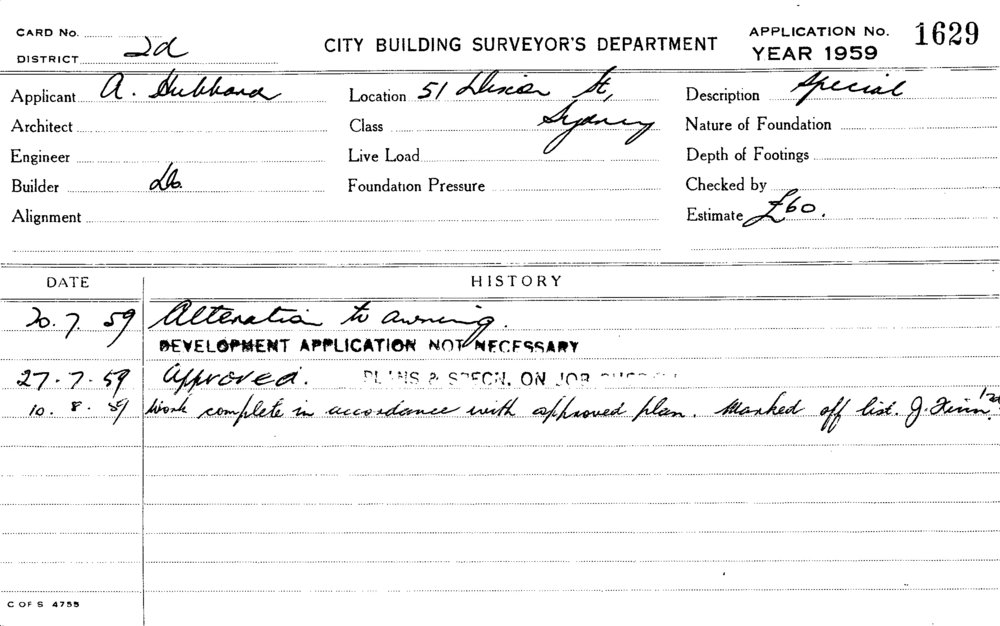 CARD No.
DISTRICT 2d
CITY BUILDING SURVEYOR'S DEPARTMENT
APPLICATION No. 1629
YEAR 1959
Applicant A. Hubbard
Architect
Engineer
Builder Do.
Alignment
Location 51 Dixon St,
Sydney
Class
Live Load
Foundation Pressure
Description Special
Nature of Foundation
Depth of Footings
Checked by
Estimate £60.
DATE HISTORY
20.7.59 Alteration to awning.
DEVELOPMENT APPLICATION NOT NECESSARY
27.7.59 Approved. PLANS & SPECN. ON JOB
10.8.59 Work complete in accordance with approved plan. Marked off list. J.
C OF S 4755